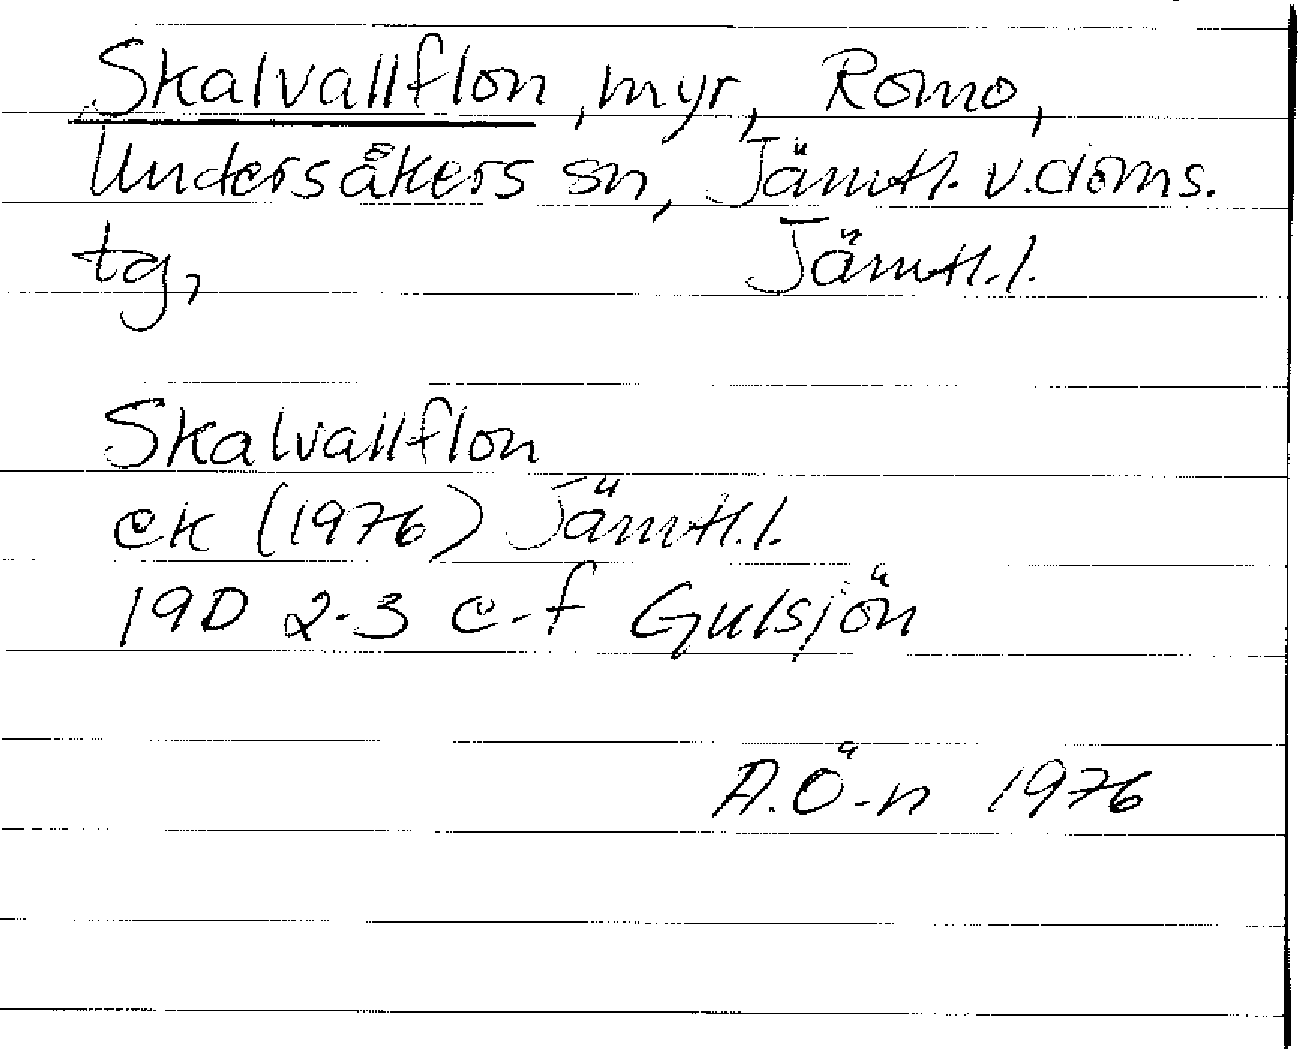 Skalvallflon, myr, Romo,
Undersåkers sn, Jämtl. v. doms.
tg, Jämtl. l.
Skalvallflon
ek (1976) Jämtl. l.
19D 2-3 e-f Gulsjön
A.Ö-n 1976